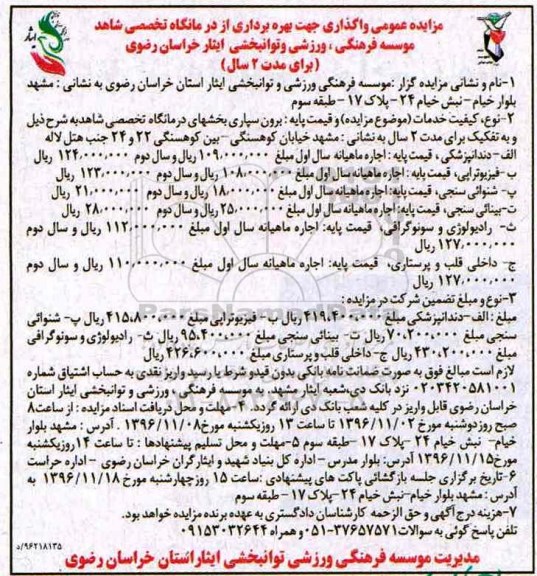 مزایده عمومی واگذاری جهت بهره برداری از درمانگاه تخصصی شاهد
موسسه فرهنگی ، ورزشی وتوانبخشی ایثار خراسان رضوی
(برای مدت ۲ سال)
۱-نام و نشانی مزایده گزار :موسسه فرهنگی ورزشی و توانبخشی ایثار استان خراسان رضوی به نشانی : مشهد
بلوار خیام –نبش خیام ۲۴ – پلاک ۱۷ – طبقه سوم
۲-نوع، کیفیت خدمات (موضوع مزایده) و قیمت پایه : برون سپاری بخشهای درمانگاه تخصصی شاهدبه شرح ذیل
و به تفکیک برای مدت ۲ سال به نشانی : مشهد خیابان کوهسنگی –بین کوهسنگی ۲۲ و ۲۴ جنب هتل لاله
الف-دندانپزشکی ، قیمت پایه : اجاره ماهیانه سال اول مبلغ ۱۰۹/۰۰۰/۰۰۰ ریال و سال دوم ۱۲۴/۰۰۰/۰۰۰ ریال
ب- فیزیوتراپی، قیمت پایه : اجاره ماهیانه سال اول مبلغ ۱۰۸/۰۰۰/۰۰۰ ریال و سال دوم ۱۲۳/۰۰۰/۰۰۰ ریال
پ- شنوائی سنجی، قیمت پایه: اجاره ماهیانه سال اول مبلغ ۱۸/۰۰۰/۰۰۰ ریال و سال دوم ۲۱/۰۰۰/۰۰۰ ریال
ت-بینائی سنجی، قیمت پایه: اجاره ماهیانه سال اول مبلغ ۲۵/۰۰۰/۰۰۰ ریال و سال دوم ۲۸/۰۰۰/۰۰۰ ریال
ث- رادیولوژی و سونوگرافی، قیمت پایه: اجاره ماهیانه سال اول مبلغ ۱۱۲/۰۰۰/۰۰۰ ریال و سال دوم
۱۲۷/۰۰۰/۰۰۰ ریال
ج- داخلی قلب و پرستاری، قیمت پایه: اجاره ماهیانه سال اول مبلغ ۱۱۰/۰۰۰/۰۰۰ ریال و سال دوم
۱۲۷/۰۰۰/۰۰۰ ریال
۳-نوع و مبلغ تضمین شرکت در مزایده :
مبلغ : الف-دندانپزشکی مبلغ ۴۱۹/۴۰۰/۰۰۰ ریال ب- فیزیوتراپی مبلغ ۴۱۵/۸۰۰/۰۰۰ ریال پ- شنوائی
سنجی مبلغ ۷۰/۲۰۰/۰۰۰ ریال ت- بینائی سنجی مبلغ ۹۵/۴۰۰/۰۰۰ ریال ث- رادیولوژی و سونوگرافی
مبلغ ۴۳۰/۲۰۰/۰۰۰ ریال ج- داخلی قلب و پرستاری مبلغ ۴۲۶/۶۰۰/۰۰۰ ریال
لازم است مبالغ فوق به صورت ضمانت نامه بانکی بدون قیدو شرط یا رسید واریز نقدی به حساب اشتیاق شماره
۰۲۰۳۴۲۰۵۸۱۰۰۱ نزد بانک دی،شعبه ایثار مشهد، به موسسه فرهنگی ، ورزشی و توانبخشی ایثار استان
خراسان رضوی قابل واریز در کلیه شعب بانک دی ارائه گردد. ۴- مهلت و محل دریافت اسناد مزایده : از ساعت۸
صبح روزدوشنبه مورخ ۱۳۹۶/۱۱/۰۲ تا ساعت ۱۳ روزیکشنبه مورخ۱۳۹۶/۱۱/۰۸ . آدرس : مشهد بلوار
خیام – نبش خیام ۲۴ –پلاک ۱۷ –طبقه سوم ۵-مهلت و محل تسلیم پیشنهادها : تا ساعت ۱۴ روزیکشنبه
مورخ ۱۳۹۶/۱۱/۱۵ آدرس: بلوار مدرس – اداره کل بنیاد شهید و ایثارگران خراسان رضوی – اداره حراست
۶-تاریخ برگزاری جلسه بازگشائی پاکت های پیشنهادی :ساعت ۱۵ روزچهارشنبه مورخ ۱۳۹۶/۱۱/۱۸ به
آدرس : مشهد بلوار خیام-نبش خیام ۲۴ –پلاک ۱۷ – طبقه سوم
۷-هزینه درج آگهی و حق الزحمه کارشناسان دادگستری به عهده برنده مزایده خواهد بود.
تلفن پاسخ گوئی به سوالات ۳۷۶۵۷۵۷۱-۰۵۱ و همراه ۰۹۱۵۳۰۳۲۶۴۴
۹۶۲۱۸۱۳۵/د
مدیریت موسسه فرهنگی ورزشی توانبخشی ایثار استان خراسان رضوی